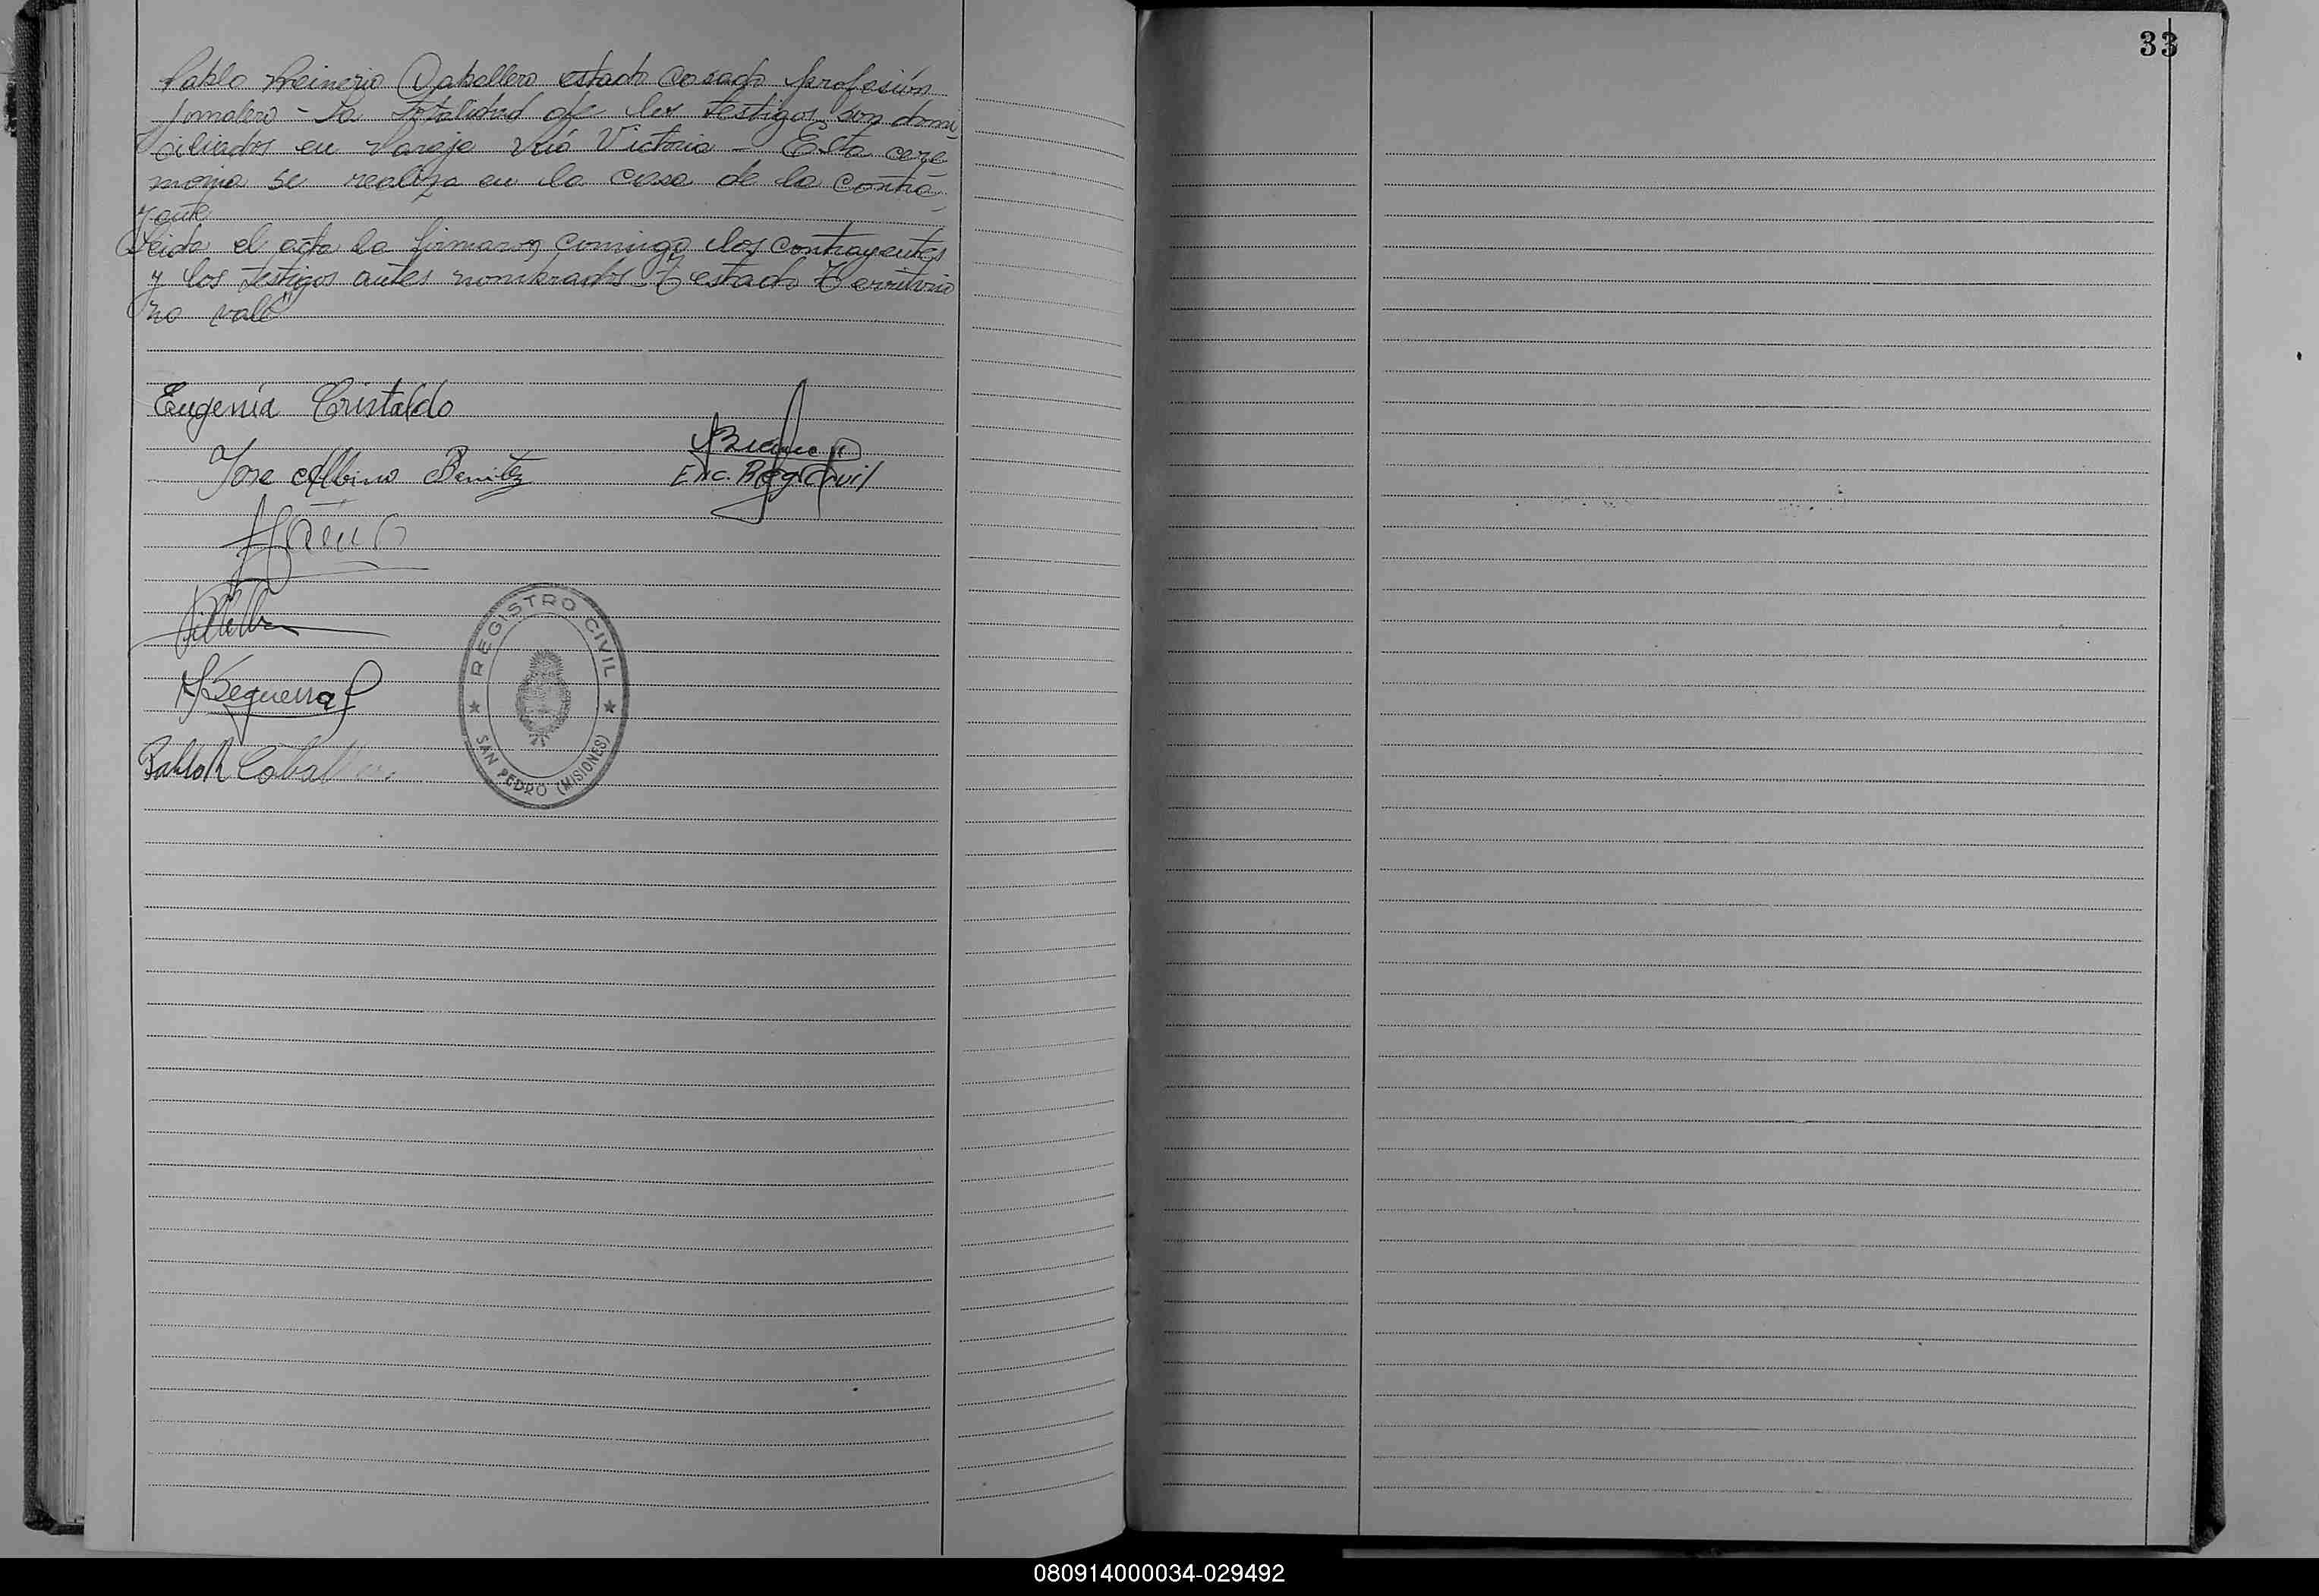 33
Pablo Reinerio Caballero estado casado profesión
jornalero - La totalidad de los testigos son domi
ciliados en Paraje Victoria - Esta cere
monia se realiza en la casa de la contra
yente
Leida el acta la firmaron comingo los contrayentes
y los testigos antes nombrados T estado Territorio
"no vale"
Eugenia Cristaldo
Jose Albino Benitez
Enc. Reg Civil
Sequeira
Pablo R Caballero
REGISTRO CIVIL
SAN PEDRO (MISIONES)
080914000034-029492